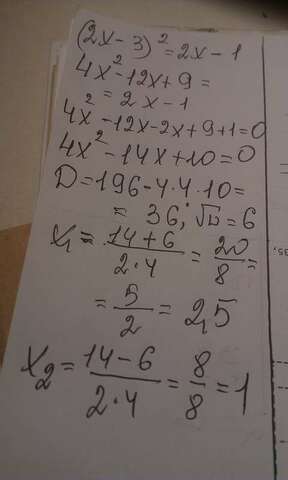 (2x-3)²=2x-1
4x²-12x+9=
=2x-1
4x²-12x-2x+9+1=0
4x²-14x+10=0
D=196-4·4·10=
= 36; √D=6
x₁= (14+6)/(2·4) = 20/8 =
= 5/2 = 2,5
x₂= (14-6)/(2·4) = 8/8 = 1